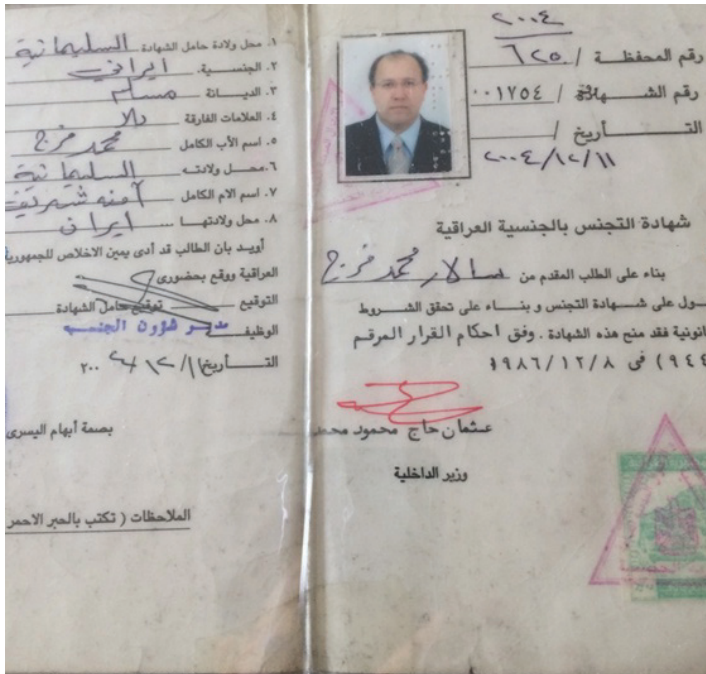 ٢٠٠٤
رقم المحفظة / ٦٢٥
رقم الشهادة / ٠٠١٧٥٤
التــاريخ /
٢٠٠٤/١٢/١١
شهادة التجنس بالجنسية العراقية
بناء على الطلب المقدم من سالار محمد فرج
ول على شهادة التجنس وبناء على تحقق الشروط
انونية فقد منح هذه الشهادة . وفق احكام القرار المرقم
(٩٤٤ في ١٩٨٦/١٢/٨
عثمان حاج محمود
وزير الداخلية
١. محل ولادة حامل الشهادة السليمانية
٢. الجنسية. ايراني
٣. الديــانة مسلم
٤. العلامات الفارقة
٥. اسم الأب الكامل محمد فرج
٦. محــل ولادتــه السليمانية
٧. اسم الام الكامل آمنه شريف
٨. محل ولادتهــا ... ايران
أويــد بان الطالب قد أدى يمين الاخلاص للجمهورية
العراقية ووقع بحضوري
التوقيع توقيع حامل الشهادة
الوظيفــة مدير شؤون الجنسيه
التــأريخ
بصمة أبهام اليسرى
الملاحظات ( تكتب بالحبر الاحمر